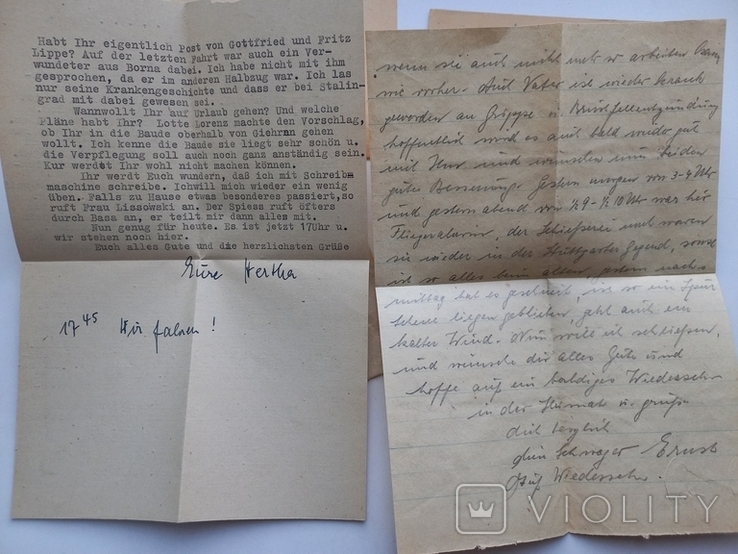 Habt Ihr eigentlich Post von Gottfried und Fritz
Lippe? Auf der letzten Fahrt war auch ein Ver-
wundeter aus Borna dabei. Ich habe nicht mit ihm
gesprochen, da er im anderen Halbzug war. Ich las
nur seine Krankengeschichte und dass er bei Stalin-
grad mit dabei gewesen sei.
Wannwollt Ihr auf Urlaub gehen? Und welche
Pläne habt Ihr? Lotte Lorenz machte den Vorschlag,
ob Ihr in die Baude oberhalb von Giehran gehen
wollt. Ich kenne die Baude sie liegt sehr schön u.
die Verpflegung soll auch noch ganz anständig sein.
Kur werdet Ihr wohl nicht machen können.
Ihr werdt Euch wundern, daß ich mit Schreibm
maschine schreibe. Ichwill mich wieder ein wenig
üben. Falls zu Hause etwas besonderes passiert, so
ruft Frau Lissowski an. Der Spiess ruft öfters
durch Basa an, er teilt mir dann alles mit.
Nun genug für heute. Es ist jetzt 17Uhr u.
wir stehen noch hier.
Euch alles Gute und die herzlichsten Grüße
Eure Hertha
17 45 Wir fahren!
wenn sie auch nicht mehr so arbeiten kann
wie vorher. Auch Vater ist wieder krank
geworden an Grippe u. Brustfellentzündung
hoffentlich wird es auch bald wieder gut
mit Ihm und wünschen nun beiden
gute Besserung. Gestern morgen von 3-4 Uhr
und gestern abend von ½9-½10 Uhr war hier
Fliegeralarm, der Schießerei nach waren
sie wieder in der Stuttgarter Gegend, sonst
ist so alles beim alten, gestern nach-
mittag hat es geschneit, ist so ein
Schnee liegen geblieben, geht auch ein
kalter Wind. Nun will ich schließen,
und wünsche dir alles Gute und
hoffe auf ein baldiges Wiedersehn
in der Heimat u. grüß
dich herzlich
dein Schwager Ernst
Auf Wiedersehn.
VIOLITY